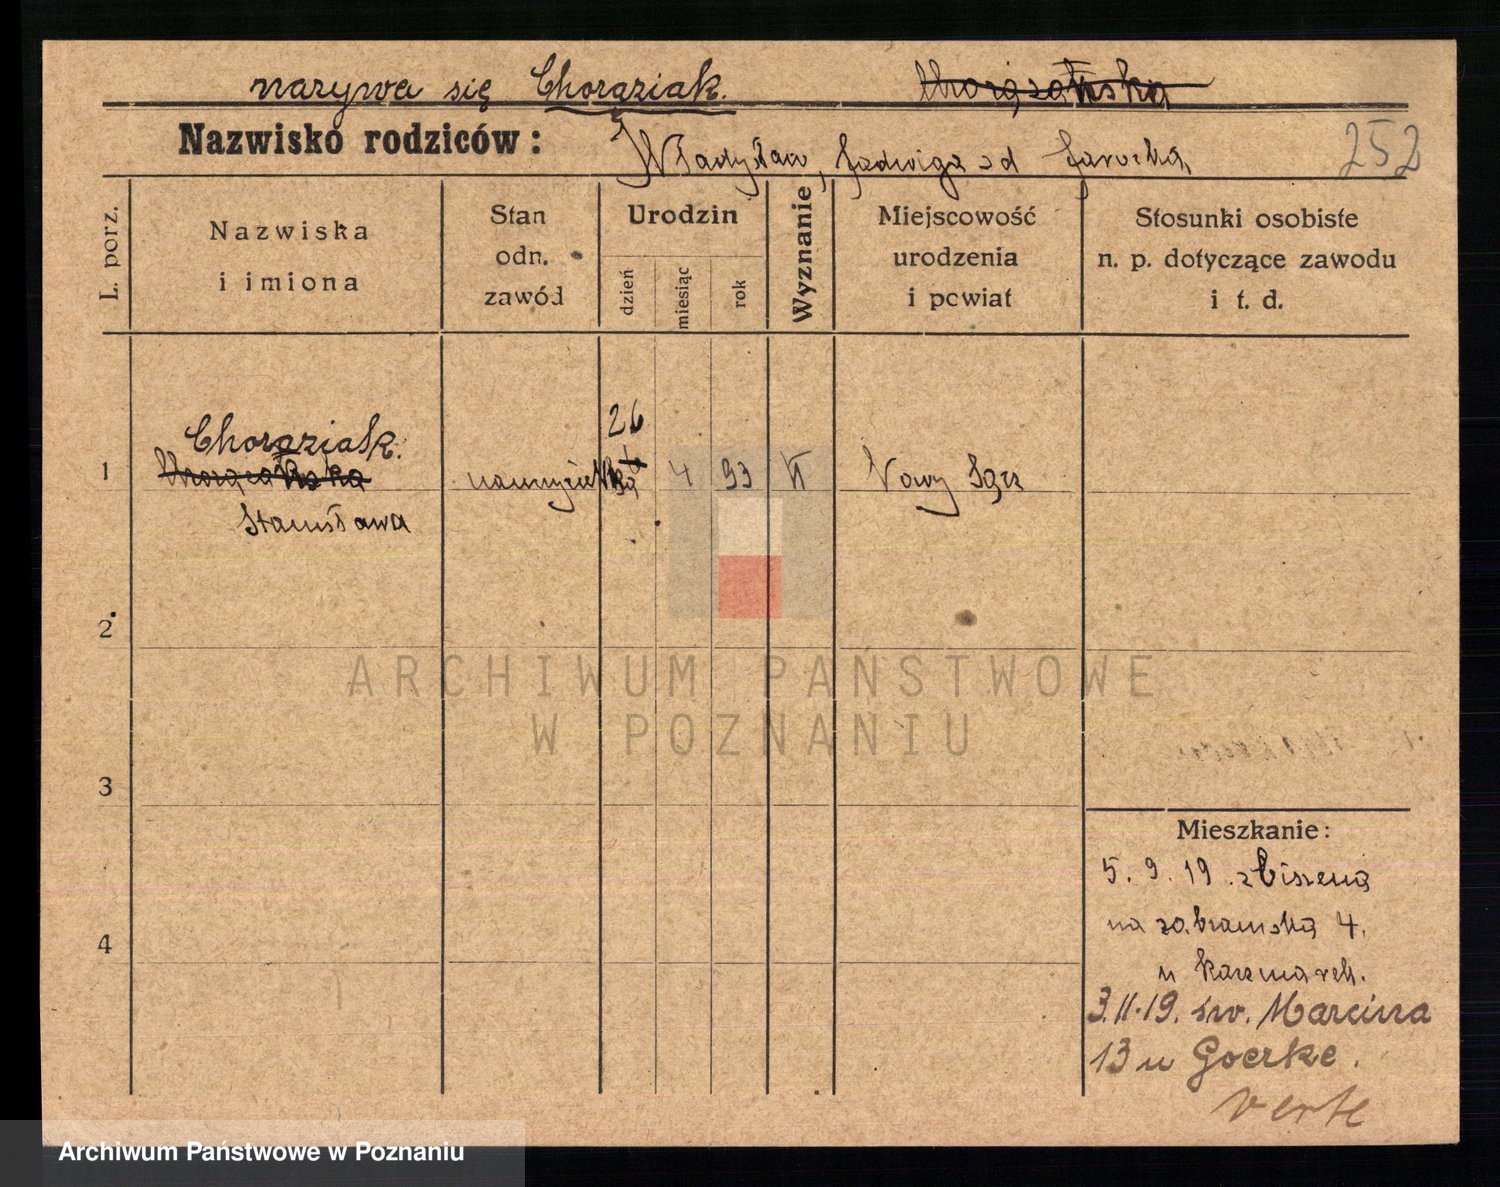 nazywa się Chorąziak.
Nazwisko rodziców: Władysław, Jadwiga od 252
L. porz.
Nazwiska i imiona
Stan odn. zawód
Urodzin
dzień
miesiąc
rok
Wyznanie
Miejscowość urodzenia i powiat
Stosunki osobiste n. p. dotyczące zawodu i t. d.
Chorąziak.
26
1 4 93 Nowy Sącz
Stanisława
2
3
4
ARCHIWUM PAŃSTWOWE
W POZNANIU
Mieszkanie:
5. 9. 19
na 4.
u
3.11.19. św. Marcina
13 u Goerke.
verte
Archiwum Państwowe w Poznaniu